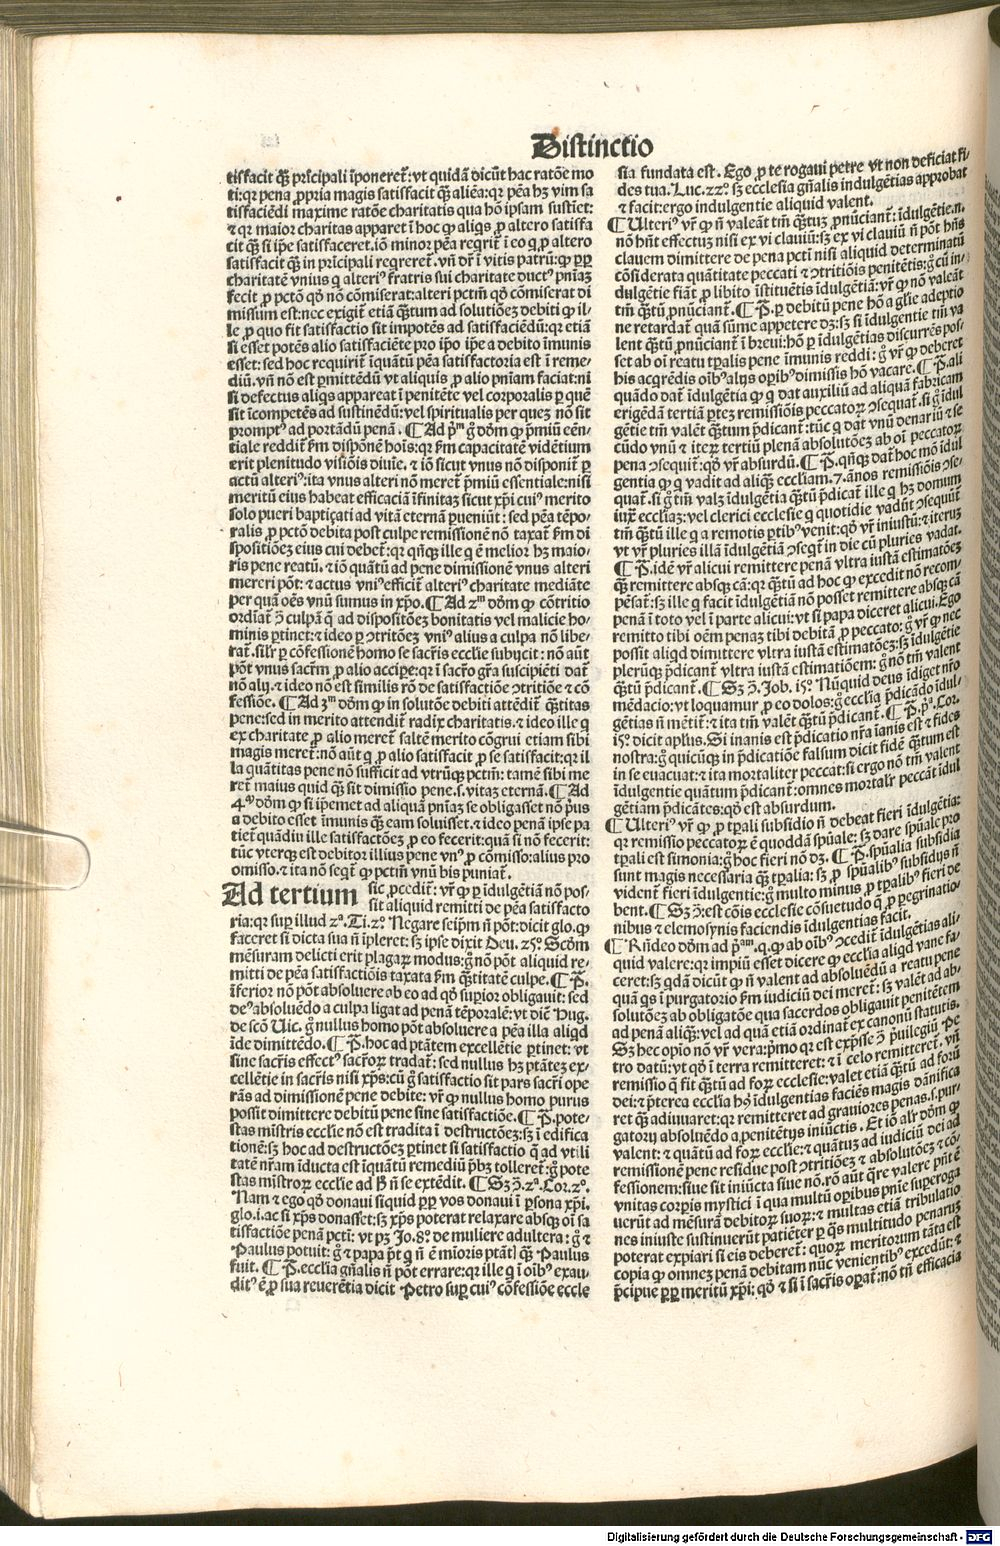 Distinctio
tisfacit q̃ꝫ prĩcipali ĩponeret᷑: vt quidã dicũt hac ratõe mo
ti: qꝛ pena ꝓpria magis satisfacit q̃ꝫ aliẽa: qꝛ pẽa hꝫ vim sa
tisfaciẽdi maxime ratõe charitatis qua hõ ipsam sustiet:
⁊ qꝛ maior charitas apparet ĩ hoc ꝙ aliqs ꝓ altero satisfa
cit q̃ꝫ si ip̃e satisfaceret. iõ minor pẽa reqrit᷑ ĩ eo q ꝓ altero
satisfacit q̃ꝫ in prĩcipali reqreret᷑. vñ dr̃ ĩ vitis patrũ: ꝙ ꝓpꝑ
charitatẽ vnius q alteriꝰ fratris sui charitate ductꝰ pñiaꝫ
fecit ꝓ pctõ qõ nõ cõmiserat: alteri pctm̃ qõ cõmiserat di
missum est: nec exigit᷑ etiã q̃ꝫtum ad solutiõeꝫ debiti ꝙ il-
le ꝓ quo fit satisfactio sit impotẽs ad satisfaciẽdũ: qꝛ etiã
si esset potẽs alio satisfaciẽte pro ip̃o ip̃e a debito ĩmunis
esset: sed hoc requirit᷑ ĩquãtũ pẽa satisfactoria est ĩ reme-
diũ. vñ nõ est ꝑmittẽdũ vt aliquis ꝓ alio pñiam faciat: ni
si defectus aliqs appareat ĩ penitẽte vel corporalis ꝑ quẽ
sit ĩcompetẽs ad sustinẽdũ: vel spiritualis per quez nõ sit
promptꝰ ad portãdũ penã. ¶ Ad p̃ᵐ g̊ dõm ꝙ p̃miũ eẽn-
tiale reddit᷑ ẜm dispõnẽ hoĩs: qꝛ ẜm capacitatẽ vidẽtium
erit plenitudo visiõis diuĩe. ⁊ iõ sicut vnus nõ disponit᷑ ꝑ
actũ alteriꝰ: ita vnus alteri nõ meret᷑ p̃miũ essentiale: nisi
meritũ eius habeat efficaciã ĩfinitaꝫ sicut xp̃i cuiꝰ merito
solo pueri baptiçati ad vitã eternã ꝑueniũt: sed pẽa tẽpo-
ralis ꝓ pctõ debita post culpe remissionẽ nõ taxat᷑ ẜm di
spositiõeꝫ eius cui debet᷑: qꝛ qñqꝫ ille q ẽ melior hꝫ maio-
ris pene reatũ. ⁊ iõ quãtũ ad pene dimissionẽ vnus alteri
mereri põt: ⁊ actus vniꝰ efficit᷑ alteriꝰ charitate mediãte
per quã oẽs vnũ sumus in xp̃o. ¶ Ad 2ᵐ dõm ꝙ cõtritio
ordĩat᷑ ꝯ culpã q̃ ad dispositõeꝫ bonitatis vel malicie ho-
minis ꝑtinet: ⁊ ideo ꝑ ꝯtritõeꝫ vniꝰ alius a culpa nõ libe-
rat᷑. sil̃r ꝑ cõfessionẽ homo se sacr̃is ecclie subijcit: nõ aũt
põt vnus sacr̃m ꝓ alio accipe: qꝛ ĩ sacr̃o gr̃a suscipiẽti dat᷑
nõ alij. ⁊ ideo nõ est similis rõ de satisfactiõe ꝯtritiõe ⁊ cõ
fessiõe. ¶ Ad 3ᵐ dõm ꝙ in solutõe debiti attẽdit᷑ q̃ꝫtitas
pene: sed in merito attendit᷑ radix charitatis. ⁊ ideo ille q
ex charitate ꝓ alio meret᷑ saltẽ merito cõgrui etiam sibi
magis meret᷑: nõ aũt q ꝓ alio satisfacit ꝓ se satisfacit: qꝛ il
la quãtitas pene nõ sufficit ad vtrũqꝫ pctm̃: tamẽ sibi me
ret᷑ maius quid q̃ꝫ sit dimissio pene. s. vitaꝫ eternã. ¶ Ad
4ᵐ dõm ꝙ si ip̃emet ad aliquã pñiaꝫ se obligasset nõ p̃us
a debito esset ĩmunis q̃ꝫ eam soluisset. ⁊ ideo penã ipse pa
tiet᷑ quãdiu ille satisfactõeꝫ ꝓ eo fecerit: quã si nõ fecerit:
tũc vterqꝫ est debitor illius pene vnꝰ ꝓ cõmisso: alius pro
omisso. ⁊ ita nõ seqt᷑ ꝙ pctm̃ vnũ bis puniat᷑.
Ad tertium sic ꝓcedit᷑: vr̃ ꝙ ꝑ ĩdulgẽtiã nõ pos-
sit aliquid remitti de pẽa satisfacto
ria: qꝛ suꝑ illud 2ᵃ. Ti. 2º. Negare seip̃m ñ põt: dicit glo. ꝙ
faceret si dicta sua ñ ĩpleret: sꝫ ipse dixit Deu. 25º. Scõm
mẽsuram delicti erit plagaꝝ modus: g̊ nõ põt aliquid re-
mitti de pẽa satisfactiõis taxata ẜm q̃ꝫtitatẽ culpe. ¶ P̃.
ĩferior nõ põt absoluere ab eo ad qõ suꝑior obligauit: sed
deꝰ absoluẽdo a culpa ligat ad penã tẽporalẽ: vt diẽ Hug.
de scõ Uic. g̊ nullus homo põt absoluere a pẽa illa aliqd
ĩde dimittẽdo. ¶ P̃. hoc ad ptãtem excellẽtie ꝑtinet: vt
sine sacr̃is effectꝰ sacr̃oꝝ tradat᷑: sed nullus hꝫ ptãteꝫ ex-
cellẽtie in sacr̃is nisi xp̃s: cũ g̊ satisfactio sit pars sacr̃i ope
rãs ad dimissionẽ pene debite: vr̃ ꝙ nullus homo purus
possit dimittere debitũ pene sine satisfactiõe. ¶ P̃. pote-
stas mĩstris ecclie nõ est tradita ĩ destructõeꝫ: sꝫ ĩ edifica
tionẽ: sꝫ hoc ad destructõeꝫ ꝑtinet si satisfactio q̃ ad vtili
tatẽ nr̃am ĩducta est ĩquãtũ remediũ p̃bꝫ tolleret᷑: g̊ pote
stas mĩstroꝝ ecclie ad ß ñ se extẽdit. ¶ Sꝫ ꝯ̃. 2ᵃ. Cor. 2º.
Nam ⁊ ego qõ donaui siquid ꝓpꝑ vos donaui ĩ ꝑsona xp̃i.
glo. i. ac si xp̃s donasset: sꝫ xp̃s poterat relaxare absqꝫ oĩ sa
tisfactiõe penã pcti: vt pꝫ Jo. 8º. de muliere adultera: g̊ ⁊
Paulus potuit: g̊ ⁊ papa p̃t q ñ ẽ mĩoris ptãtꝭ q̃ꝫ Paulus
fuit. ¶ P̃. ecclia gñalis ñ põt errare: qꝛ ille q ĩ oĩbꝰ exau-
ditꝰ ẽ ꝓ sua reuerẽtia dicit Petro suꝑ cuiꝰ cõfessiõe eccle
sia fundata est. Ego ꝓ te rogaui petre vt non deficiat fi-
des tua. Luc. 22º. sꝫ ecclesia gñalis indulgẽtias approbat
⁊ facit: ergo indulgentie aliquid valent.
¶ Ulteriꝰ vr̃ ꝙ ñ valeãt tm̃ q̃ꝫtuꝫ ꝓnũciant᷑: ĩdulgẽtie. n.
nõ hñt effectuꝫ nisi ex vi clauiũ: sꝫ ex vi clauiũ ñ põt hñs
clauem dimittere de pena pcti nisi aliquid determinatũ
cõsiderata quãtitate peccati ⁊ ꝯtritiõis penitẽtis: g̊ cũ in-
dulgẽtie fiãt ꝓ libito ĩstituẽtis ĩdulgẽtiã: vr̃ ꝙ nõ valeãt
tm̃ q̃ꝫtũ ꝓnũciant᷑. ¶ P̃. ꝑ debitũ pene hõ a gl̃ie adeptio
ne retardat᷑ quã sũme appetere dꝫ: sꝫ si ĩdulgentie tm̃ va
lent q̃ꝫtũ ꝓnũciant᷑ ĩ breui: hõ ꝑ ĩdulgẽtias discurrẽs pos-
set ab oĩ reatu tꝑalis pene ĩmunis reddi: g̊ vr̃ ꝙ deberet
his acqrẽdis oĩbꝰ alijs opibꝰ dimissis hõ vacare. ¶ P̃. ali
quãdo dat᷑ ĩdulgẽtia ꝙ q dat auxiliũ ad aliquã fabricam
erigẽdã tertiã ꝑteꝫ remissiõis peccatoꝝ ꝯsequat᷑. si g̊ ĩdul
gẽtie tm̃ valẽt q̃ꝫtum p̃dicant᷑: tũc q dat vnũ denariũ ⁊ se
cũdo vnũ ⁊ iteꝝ tertiũ plenã absolutõeꝫ ab oĩ peccatoꝝ
pena ꝯsequit᷑: qõ vr̃ absurdũ. ¶ P̃. qñqꝫ dat᷑ hoc mõ ĩdul
gentia ꝙ q vadit ad aliqꝫ eccliam. 7. ãnos remissiõis ꝯse-
quat᷑. si g̊ tm̃ valꝫ ĩdulgẽtia q̃ꝫtũ p̃dicat᷑ ille q hꝫ domum
iuxᷓ eccliaꝫ: vel clerici ecclesie q quotidie vadũt ꝯsequũt᷑
tm̃ q̃ꝫtũ ille q a remotis ꝑtibꝰ venit: qõ vr̃ iniustũ: ⁊ iteruꝫ
vt vr̃ pluries illã ĩdulgẽtiã ꝯseqt᷑ in die cũ pluries vadat.
¶ P̃. idẽ vr̃ alicui remittere penã vltra iustã estimatõeꝫ
q̃ꝫ remittere absqꝫ cã: qꝛ q̃ꝫtũ ad hoc ꝙ excedit nõ recom-
pẽsat᷑: sꝫ ille q facit ĩdulgẽtiã nõ posset remittere absqꝫ cã
penã ĩ toto vel ĩ parte alicui: vt si papa diceret alicui. Ego
remitto tibi oẽm penaꝫ tibi debitã ꝓ peccato: g̊ vr̃ ꝙ nec
possit aliqd dimittere vltra iustã estimatõeꝫ: sꝫ ĩdulgẽtie
plerũqꝫ p̃dicant᷑ vltra iustã estimatiõem: g̊ nõ tm̃ valent
q̃ꝫtũ p̃dicant᷑. ¶ Sꝫ ꝯ̃. Job. 15º. Nũquid deus ĩdiget nr̃o
mẽdacio: vt loquamur ꝓ eo dolos: g̊ ecclia p̃dicãdo ĩdul-
gẽtias ñ mẽtit᷑: ⁊ ita tm̃ valẽt q̃ꝫtũ p̃dicant᷑. ¶ P̃. p̃ᵃ. Cor.
15º. dicit apl̃us. Si inanis est p̃dicatio nr̃a ĩanis est ⁊ fides
nostra: g̊ quicũqꝫ in p̃dicatiõe falsum dicit fidẽ q̃ꝫtum est
in se euacuat: ⁊ ita mortaliter peccat: si ergo nõ tm̃ valent
ĩdulgentie quãtum p̃dicant᷑: omnes mortalr̃ peccãt ĩdul
gẽtiam p̃dicãtes: qõ est absurdum.
¶ Ulteriꝰ vr̃ ꝙ ꝓ tꝑali subsidio ñ debeat fieri ĩdulgẽtia:
qꝛ remissio peccatoꝝ ẽ quoddã spũale: sꝫ dare spũale pro
tꝑali est simonia: g̊ hoc fieri nõ dꝫ. ¶ P̃. spũalia subsidia
sunt magis necessaria q̃ꝫ tꝑalia: sꝫ ꝓ spũalibꝰ subsidijs ñ
vident᷑ fieri ĩdulgentie: g̊ multo minus ꝓ tꝑalibꝰ fieri de
bent. ¶ Sꝫ ꝯ̃: est cõis ecclesie cõsuetudo q̃ ꝓ peregrinatio-
nibus ⁊ elemosynis faciendis ĩdulgentias facit.
¶ Rñdeo dõm ad p̃ᵃᵐ. q. ꝙ ab oĩbꝰ ꝯcedit᷑ ĩdulgẽtias ali-
quid valere: qꝛ impiũ esset dicere ꝙ ecclia aliqd vane fa-
ceret: sꝫ qdã dicũt ꝙ ñ valent ad absoluẽdũ a reatu pene
quã qs ĩ purgatorio ẜm iudiciũ dei meret᷑: sꝫ valẽt ad ab-
solutõeꝫ ab obligatõe qua sacerdos obligauit penitẽtem
ad penã aliqꝫ: vel ad quã etiã ordinat᷑ ex canonũ statutis.
Sꝫ hec opio nõ vr̃ vera: p̃mo qꝛ est exp̃sse ꝯ̃ p̃uilegiũ Pe
tro datũ: vt qõ ĩ terra remitteret: ⁊ ĩ celo remitteret᷑. vñ
remissio q̃ fit q̃ꝫtũ ad foꝝ ecclesie: valet etiã q̃ꝫtũ ad forũ
dei: ⁊ p̃terea ecclia hꝰ ĩdulgentias faciẽs magis dãnifica
ret q̃ꝫ adiuuaret: qꝛ remitteret ad grauiores penas. s. pur-
gatorij absoluẽdo a penitẽtijs iniũctis. Et iõ al̃r dõm ꝙ
valent: ⁊ quãtũ ad foꝝ ecclie: ⁊ quãtuꝫ ad iudiciũ dei ad
remissionẽ pene residue post ꝯtritiõeꝫ ⁊ absolutõeꝫ ⁊ cõ-
fessionem: siue sit iniũcta siue nõ. rõ aũt q̃re valere pñt ẽ
vnitas corpis mystici ĩ qua multi in opibus pñie superoga
uerũt ad mẽsurã debitoꝝ suoꝝ: ⁊ multas etiã tribulatio
nes iniuste sustinuerũt patiẽter ꝑ q̃s multitudo penaruꝫ
poterat expiari si eis deberet᷑: quoꝝ meritorum tãta est
copia ꝙ omneꝫ penã debitam nũc venientibꝰ excedũt: ⁊
p̃cipue ꝓpꝑ meritũ xp̃i: qõ ⁊ si ĩ sacr̃is opat᷑: nõ tñ efficacia
Digitalisierung gefördert durch die Deutsche Forschungsgemeinschaft - DFG